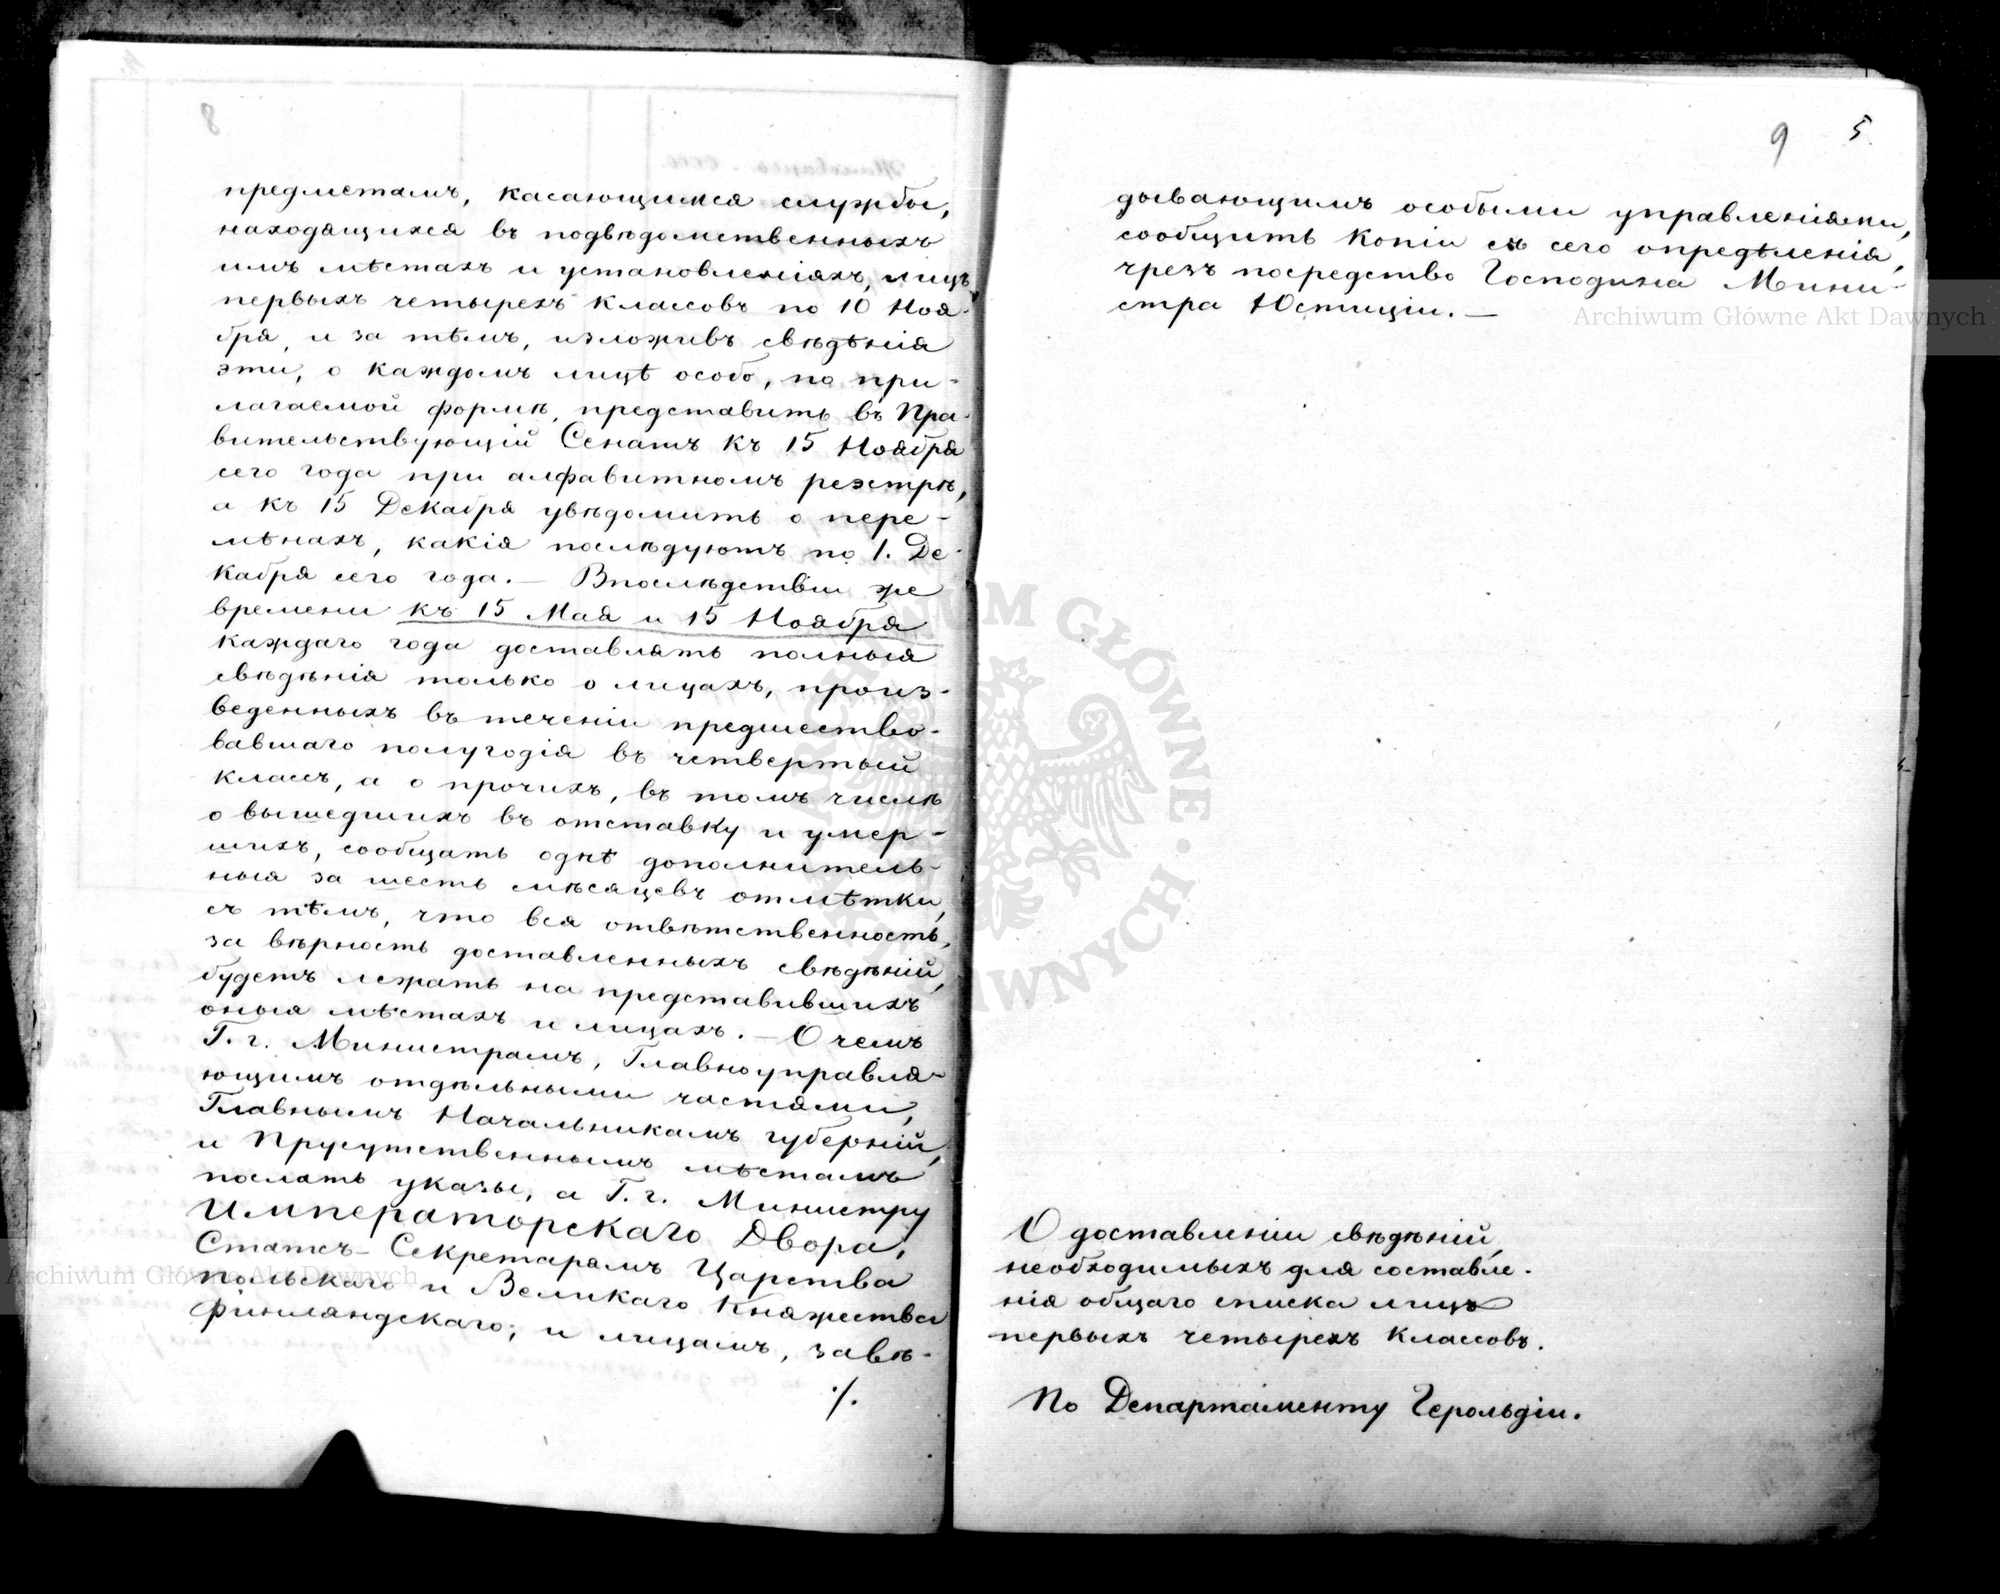 предметамъ, касающимся службы,
находящихся въ подвѣдомственныхъ
имъ мѣстахъ и установленіяхъ, лицъ
первыхъ четырехъ классовъ по 10 Ноя-
бря, и за тѣмъ, изложивъ свѣдѣнія
эти, о каждомъ лицѣ особо, по при-
лагаемой формѣ, представить въ Пра-
вительствующій Сенатъ къ 15 Ноября
сего года при алфавитномъ реэстрѣ,
а къ 15 Декабря увѣдомить о пере-
мѣнахъ, какія послѣдуютъ по 1. Де-
кабря сего года. — Впослѣдствіи же
времени къ 15 Мая и 15 Ноября
каждаго года доставлять полныя
свѣдѣнія только о лицахъ, произ-
веденныхъ въ теченіи предшество-
вавшаго полугодія въ четвертый
классъ, а о прочихъ, въ томъ числѣ
о вышедшихъ въ отставку и умер-
шихъ, сообщать однѣ дополнитель-
ныя за шесть мѣсяцевъ отмѣтки,
съ тѣмъ, что вся отвѣтственность,
за вѣрность доставленныхъ свѣдѣній,
будетъ лежать на представившихъ
оныя мѣстахъ и лицахъ. — О чемъ
Г. г. Министрамъ, Главноуправля-
ющимъ отдѣльными частями,
Главнымъ Начальникамъ губерній,
и Прусутственнымъ мѣстамъ
послать указы, а Г. г. Министру
Императорскаго Двора,
Статсъ-Секретарямъ Царства
Польскаго и Великаго Княжества
Финляндскаго, и лицамъ, завѣ-
./.
8
9 5.
дывающимъ особыми управленіями,
сообщить копіи съ сего опредѣленія,
чрезъ посредство Господина Мини-
стра Юстиціи. —
О доставленіи свѣдѣній,
необходимыхъ для составле-
нія общаго списка лицъ
первыхъ четырехъ классовъ.
По Департаменту Герольдіи.
Archiwum Główne Akt Dawnych
Archiwum Główne Akt Dawnych
ARCHIWUM GŁÓWNE AKT DAWNYCH